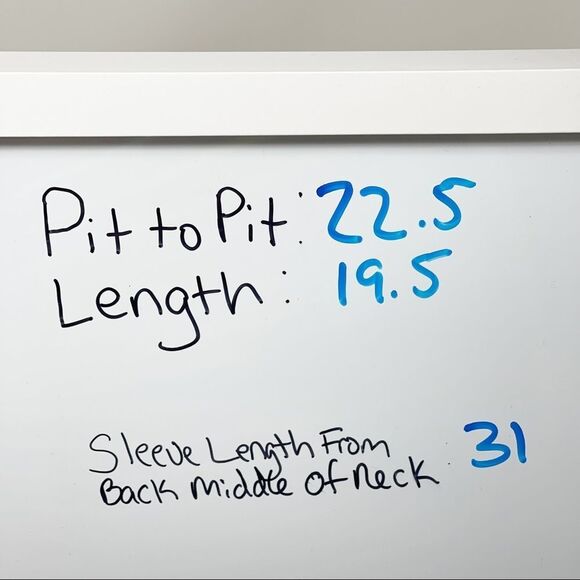 Pit to Pit: 22.5
Length: 19.5
Sleeve Length From
Back Middle of Neck 31